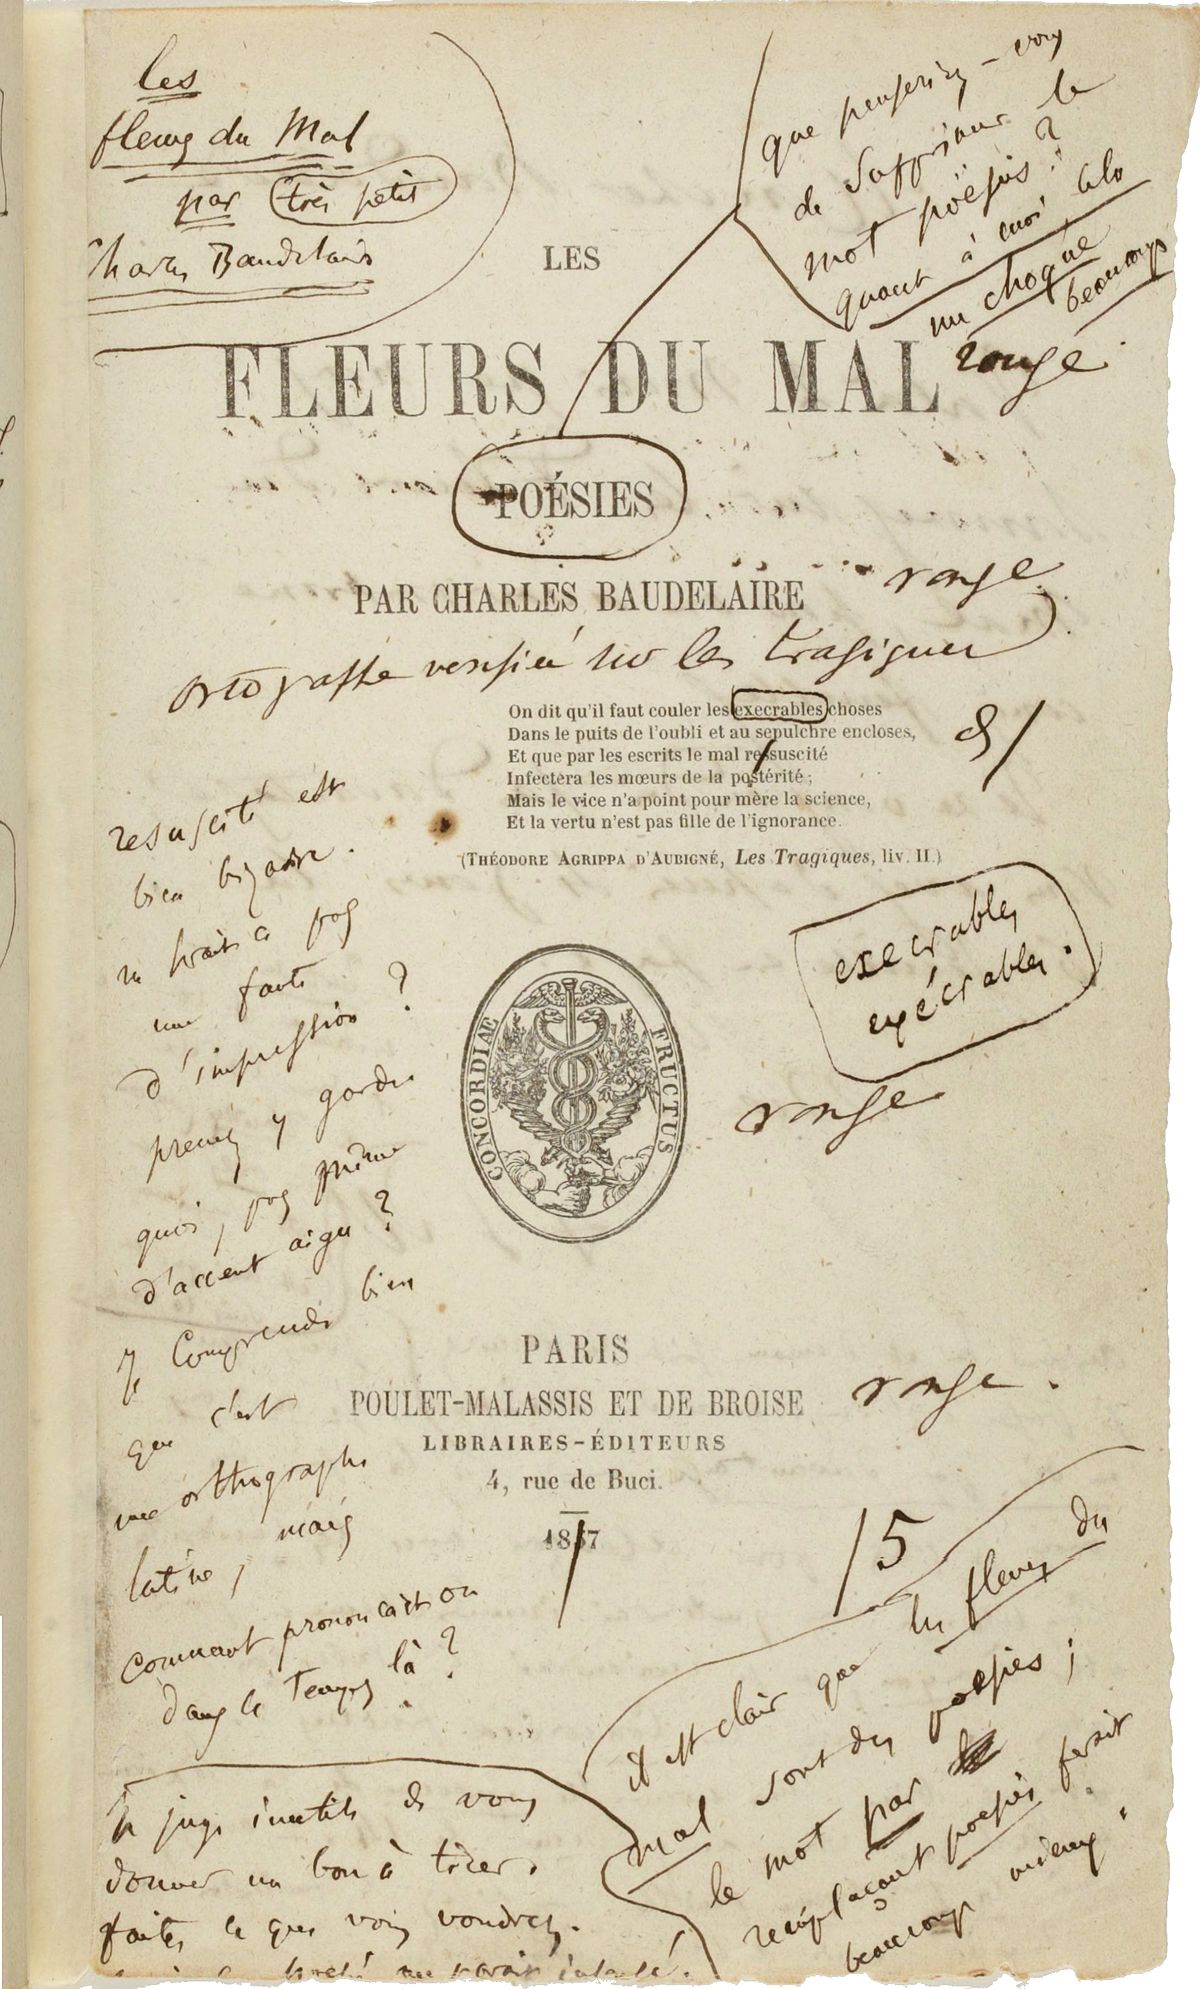 les
fleurs du Mal
par très petit
Charles Baudelaire
que penseriez-vous
de supprimer le
mot poësies ?
quant à moi cela
me choque
beaucoup
LES
FLEURS DU MAL
rouge
POÉSIES
PAR CHARLES BAUDELAIRE
rouge
ortographe vérifiée sur les tragiques
On dit qu'il faut couler les execrables choses
Dans le puits de l'oubli et au sepulchre encloses,
Et que par les escrits le mal ressuscité
Infectera les mœurs de la postérité ;
Mais le vice n'a point pour mère la science,
Et la vertu n'est pas fille de l'ignorance.
(THÉODORE AGRIPPA D'AUBIGNÉ, Les Tragiques, liv. II.)
resuscité est
bien bizarre.
ne serait-ce pas
une faute
d'impression ?
prenez y garde
quoi, pas même
d'accent aigu ?
Je comprends bien
que c'est
une orthographe
latine, mais
comment prononçait-on
dans le temps là ?
execrables
exécrables.
rouge
CONCORDIÆ FRUCTUS
PARIS
POULET-MALASSIS ET DE BROISE
rouge.
LIBRAIRES-ÉDITEURS
4, rue de Buci.
1857
/5
il est clair que les fleurs du
mal sont des poesies ;
le mot par
remplaçant poesies ferait
beaucoup mieux.
Je juge inutile de vous
donner un bon à tirer.
faites ce que vous voudrez.